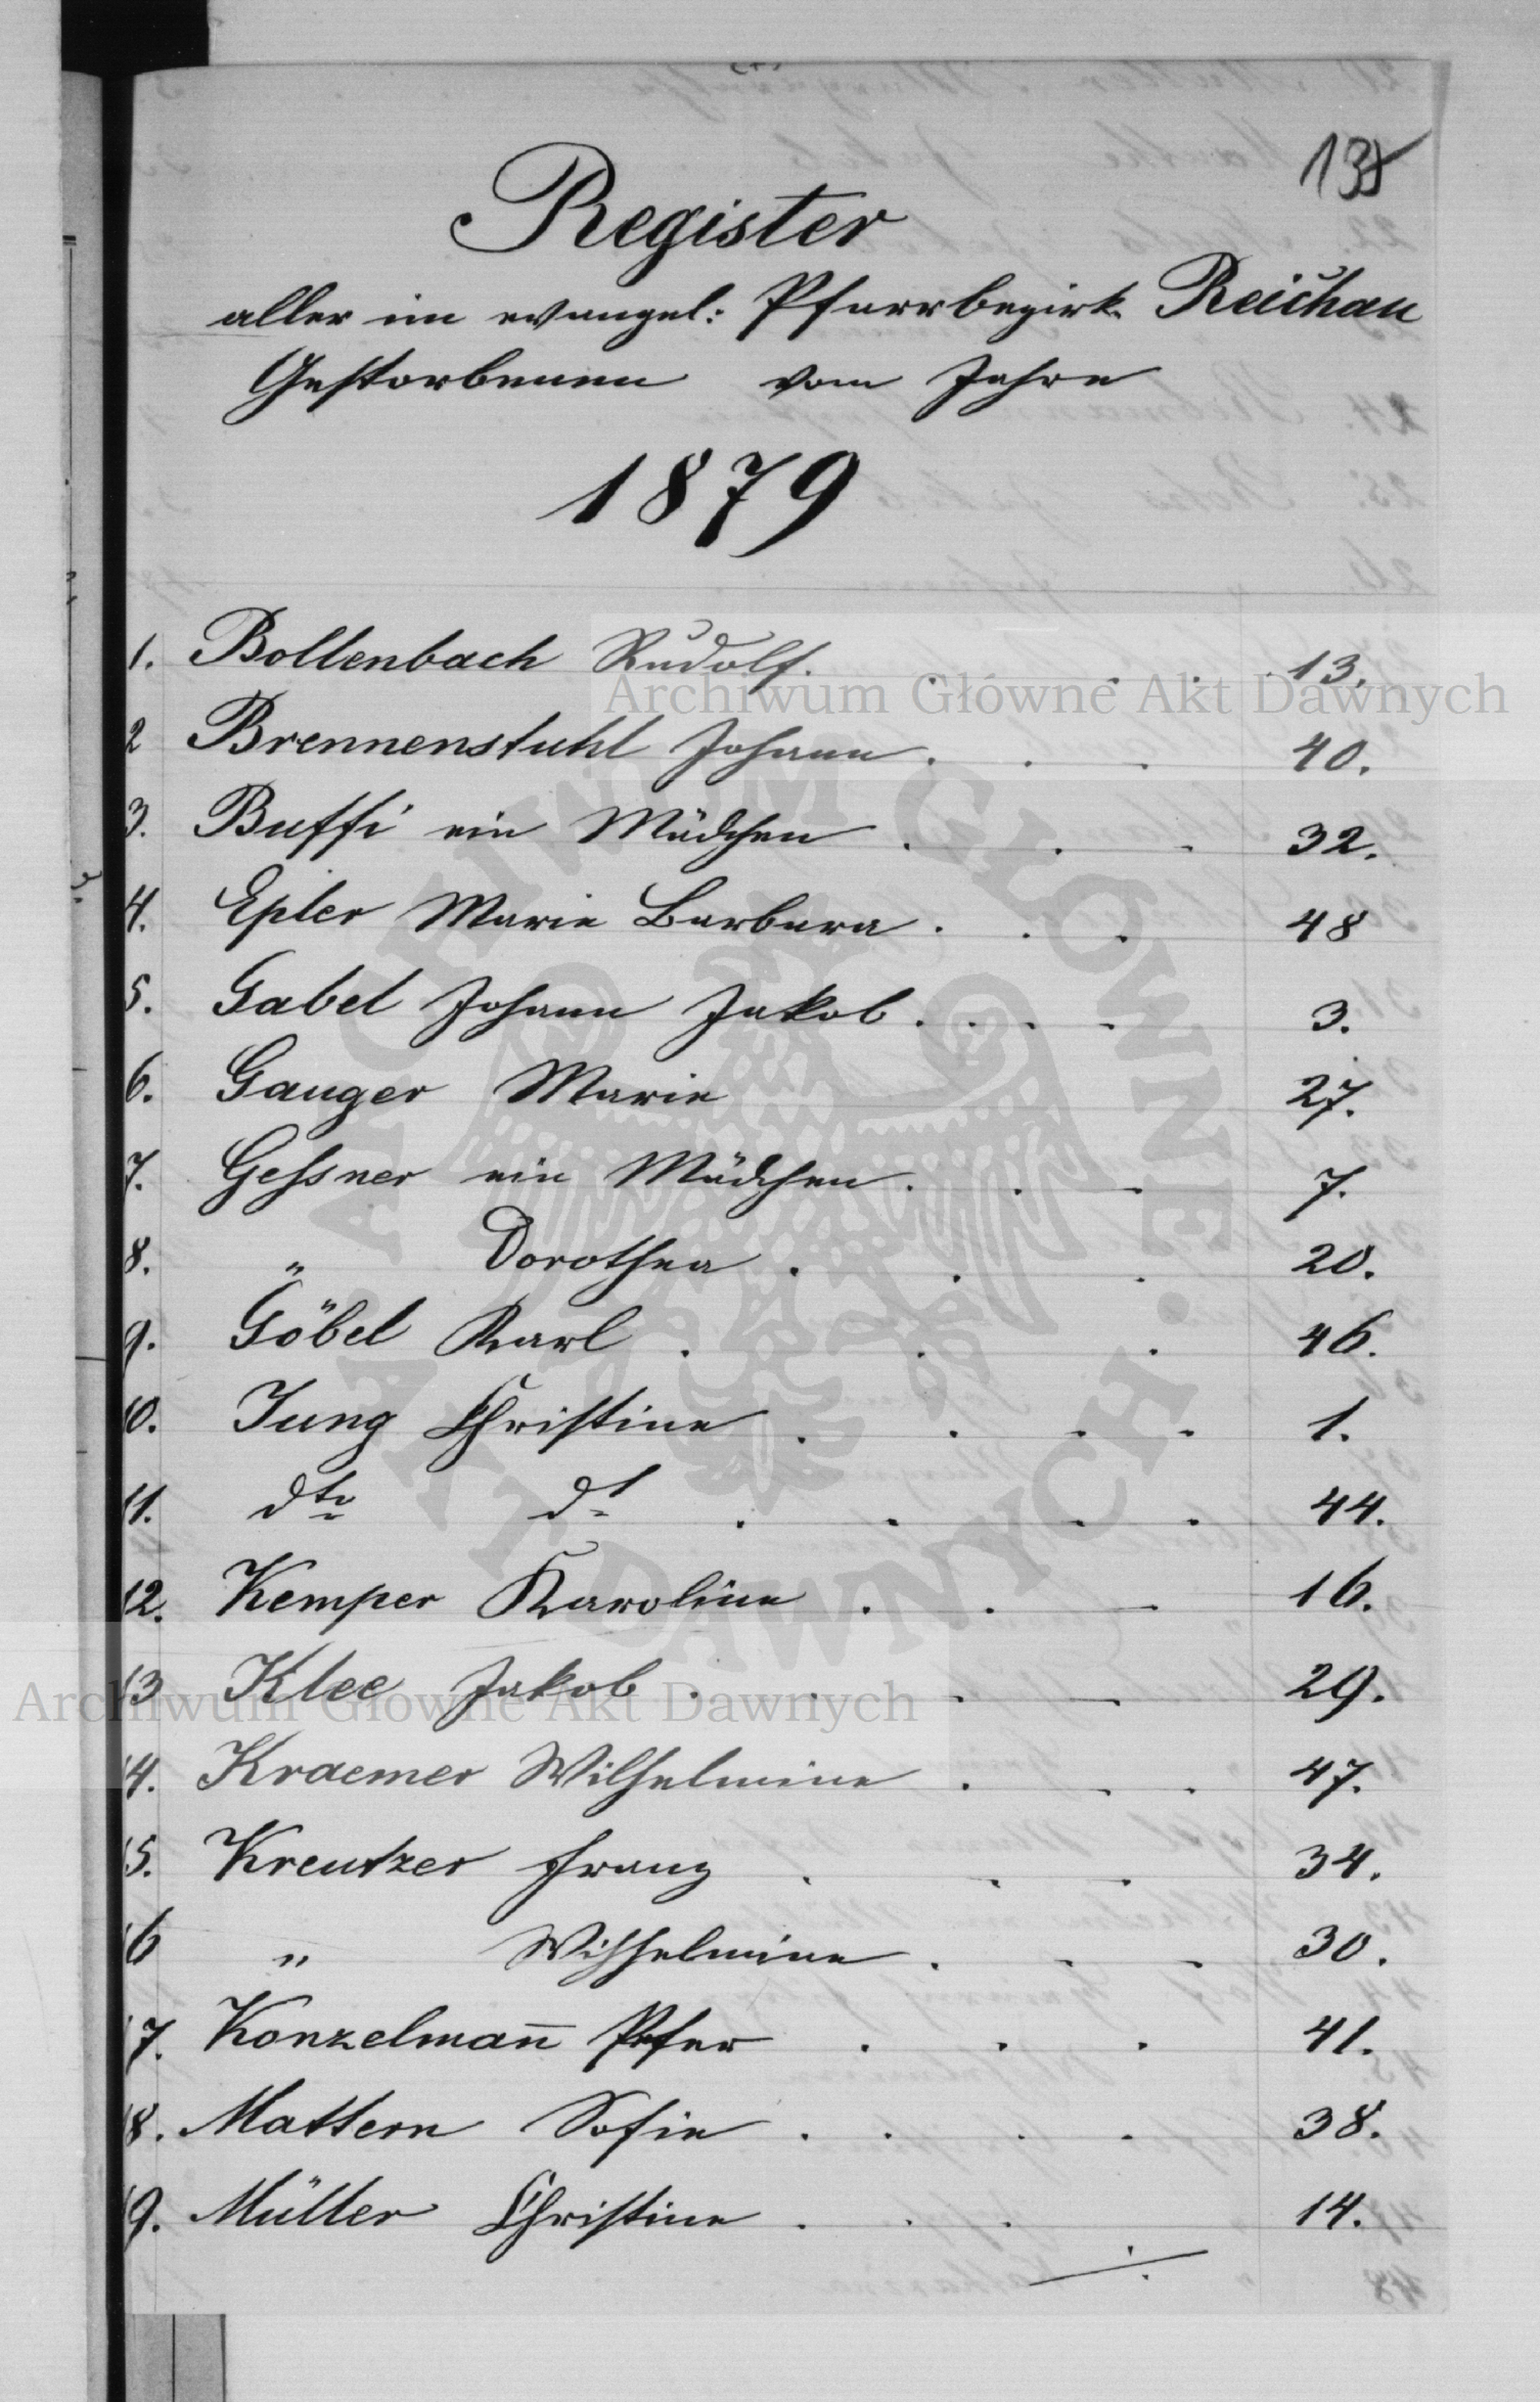 135
Register
aller im evangel: Pfarrbezirk Reichau
Gestorbenen vom Jahre
1879
1. Bollenbach Rudolf. . . . 13.
2 Brennenstuhl Johann . . . 40.
3. Buffi ein Mädchen . . . 32.
4. Epler Marie Barbara . . . 48
5. Gabel Johann Jakob . . . . 3.
6. Gauger Marie 27.
7. Gessner ein Mädchen . . . 7.
8. " Dorothea . . . 20.
9. Göbel Karl . . . 46.
10. Jung Christine . . . . 1.
11. dto dt . . . . 44.
12. Kemper Karoline . . . 16.
13 Klee Jakob . . . . 29.
14. Kraemer Wilhelmine . . . 47.
15. Kreutzer Franz . . . 34.
16 " Wilhelmine . . . 30.
17. Konzelmann̄ Peter . . . 41.
18. Mattern Sofie . . . . 38.
19. Müller Christine . . . 14.
Archiwum Główne Akt Dawnych
Archiwum Główne Akt Dawnych
ARCHIWUM GŁÓWNE • AKT DAWNYCH •